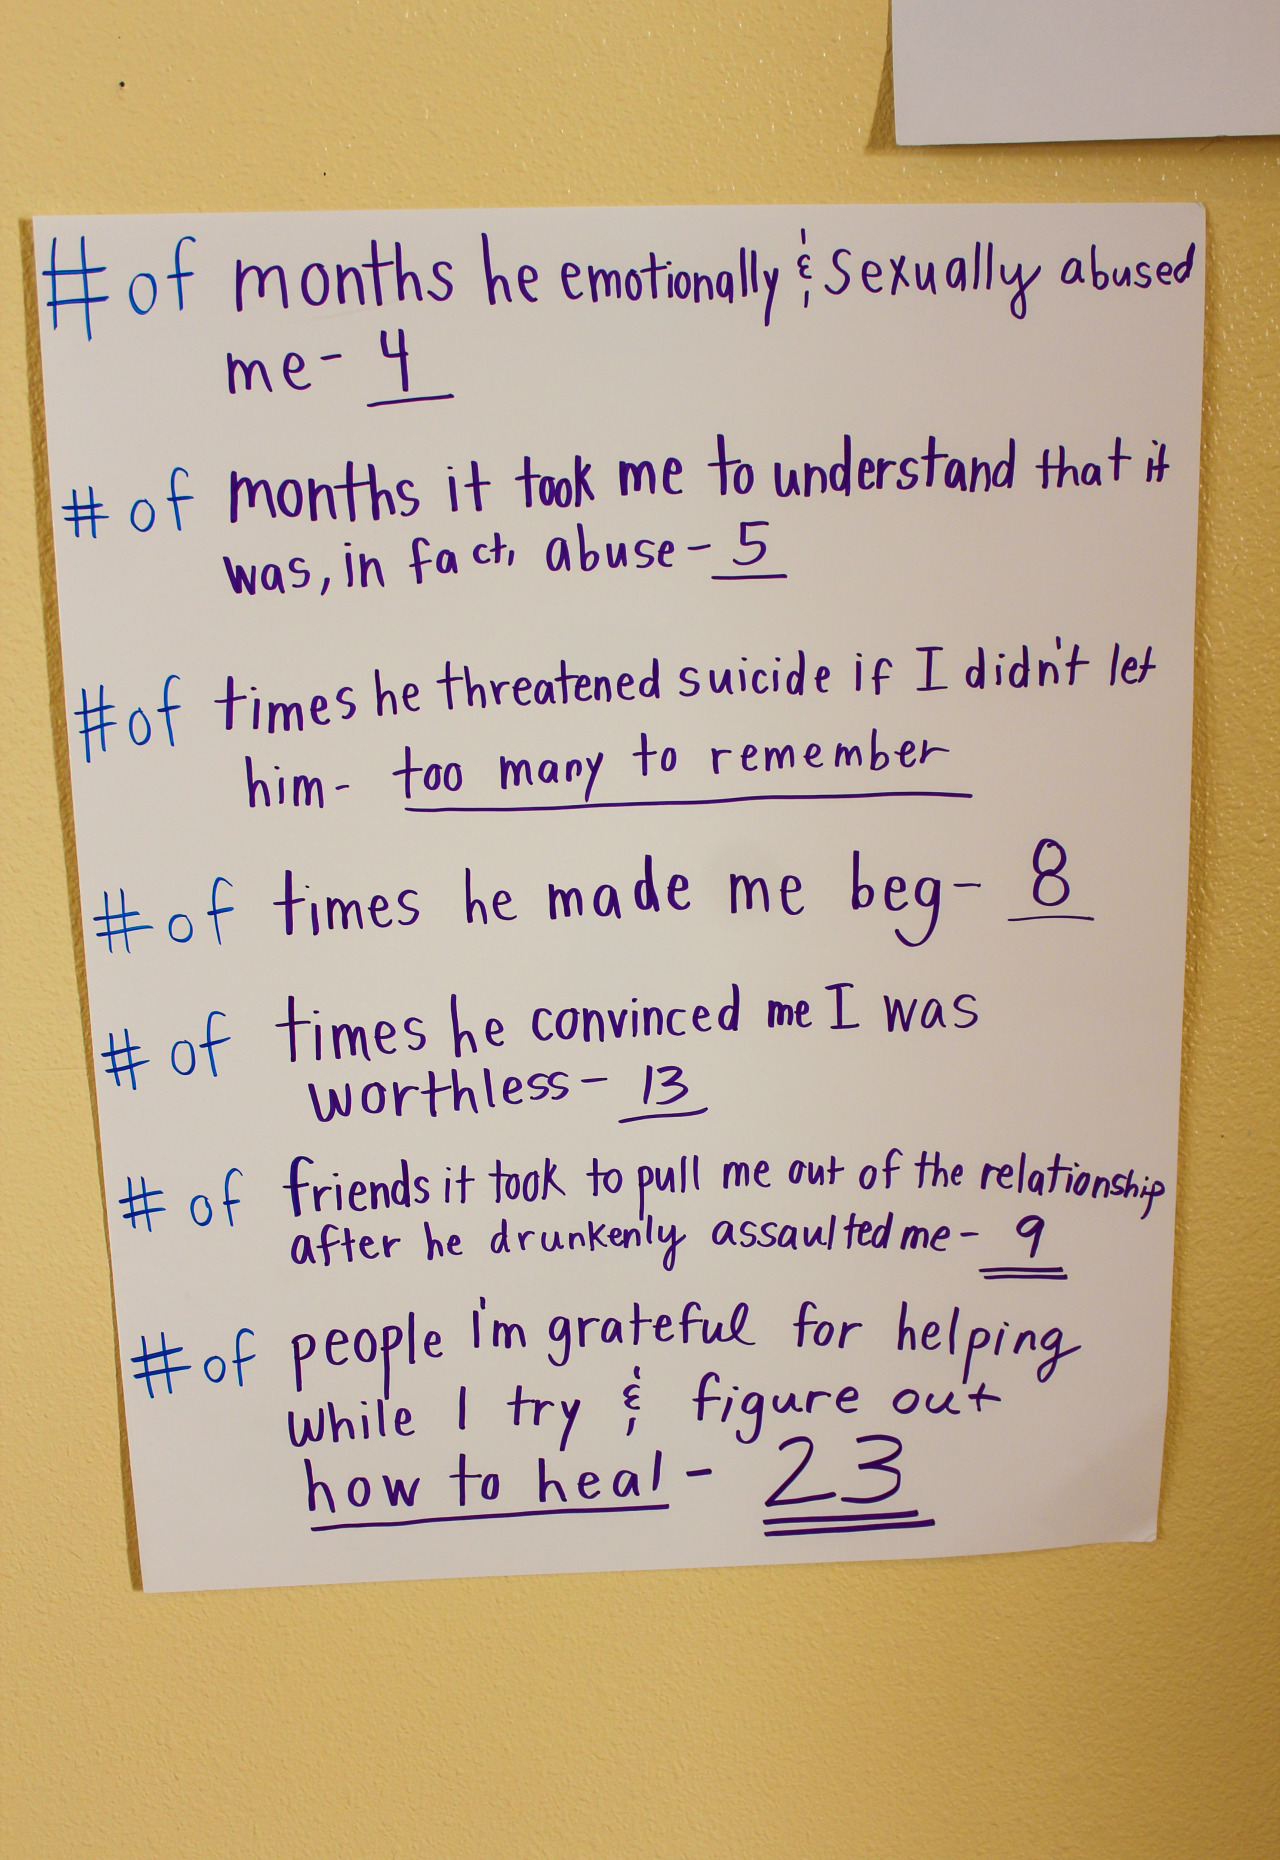 # of months he emotionally & sexually abused
me - 4
# of months it took me to understand that it
was, in fact, abuse - 5
# of times he threatened suicide if I didn't let
him - too many to remember
# of times he made me beg - 8
# of times he convinced me I was
worthless - 13
# of friends it took to pull me out of the relationship
after he drunkenly assaulted me - 9
# of people I'm grateful for helping
while I try & figure out
how to heal - 23